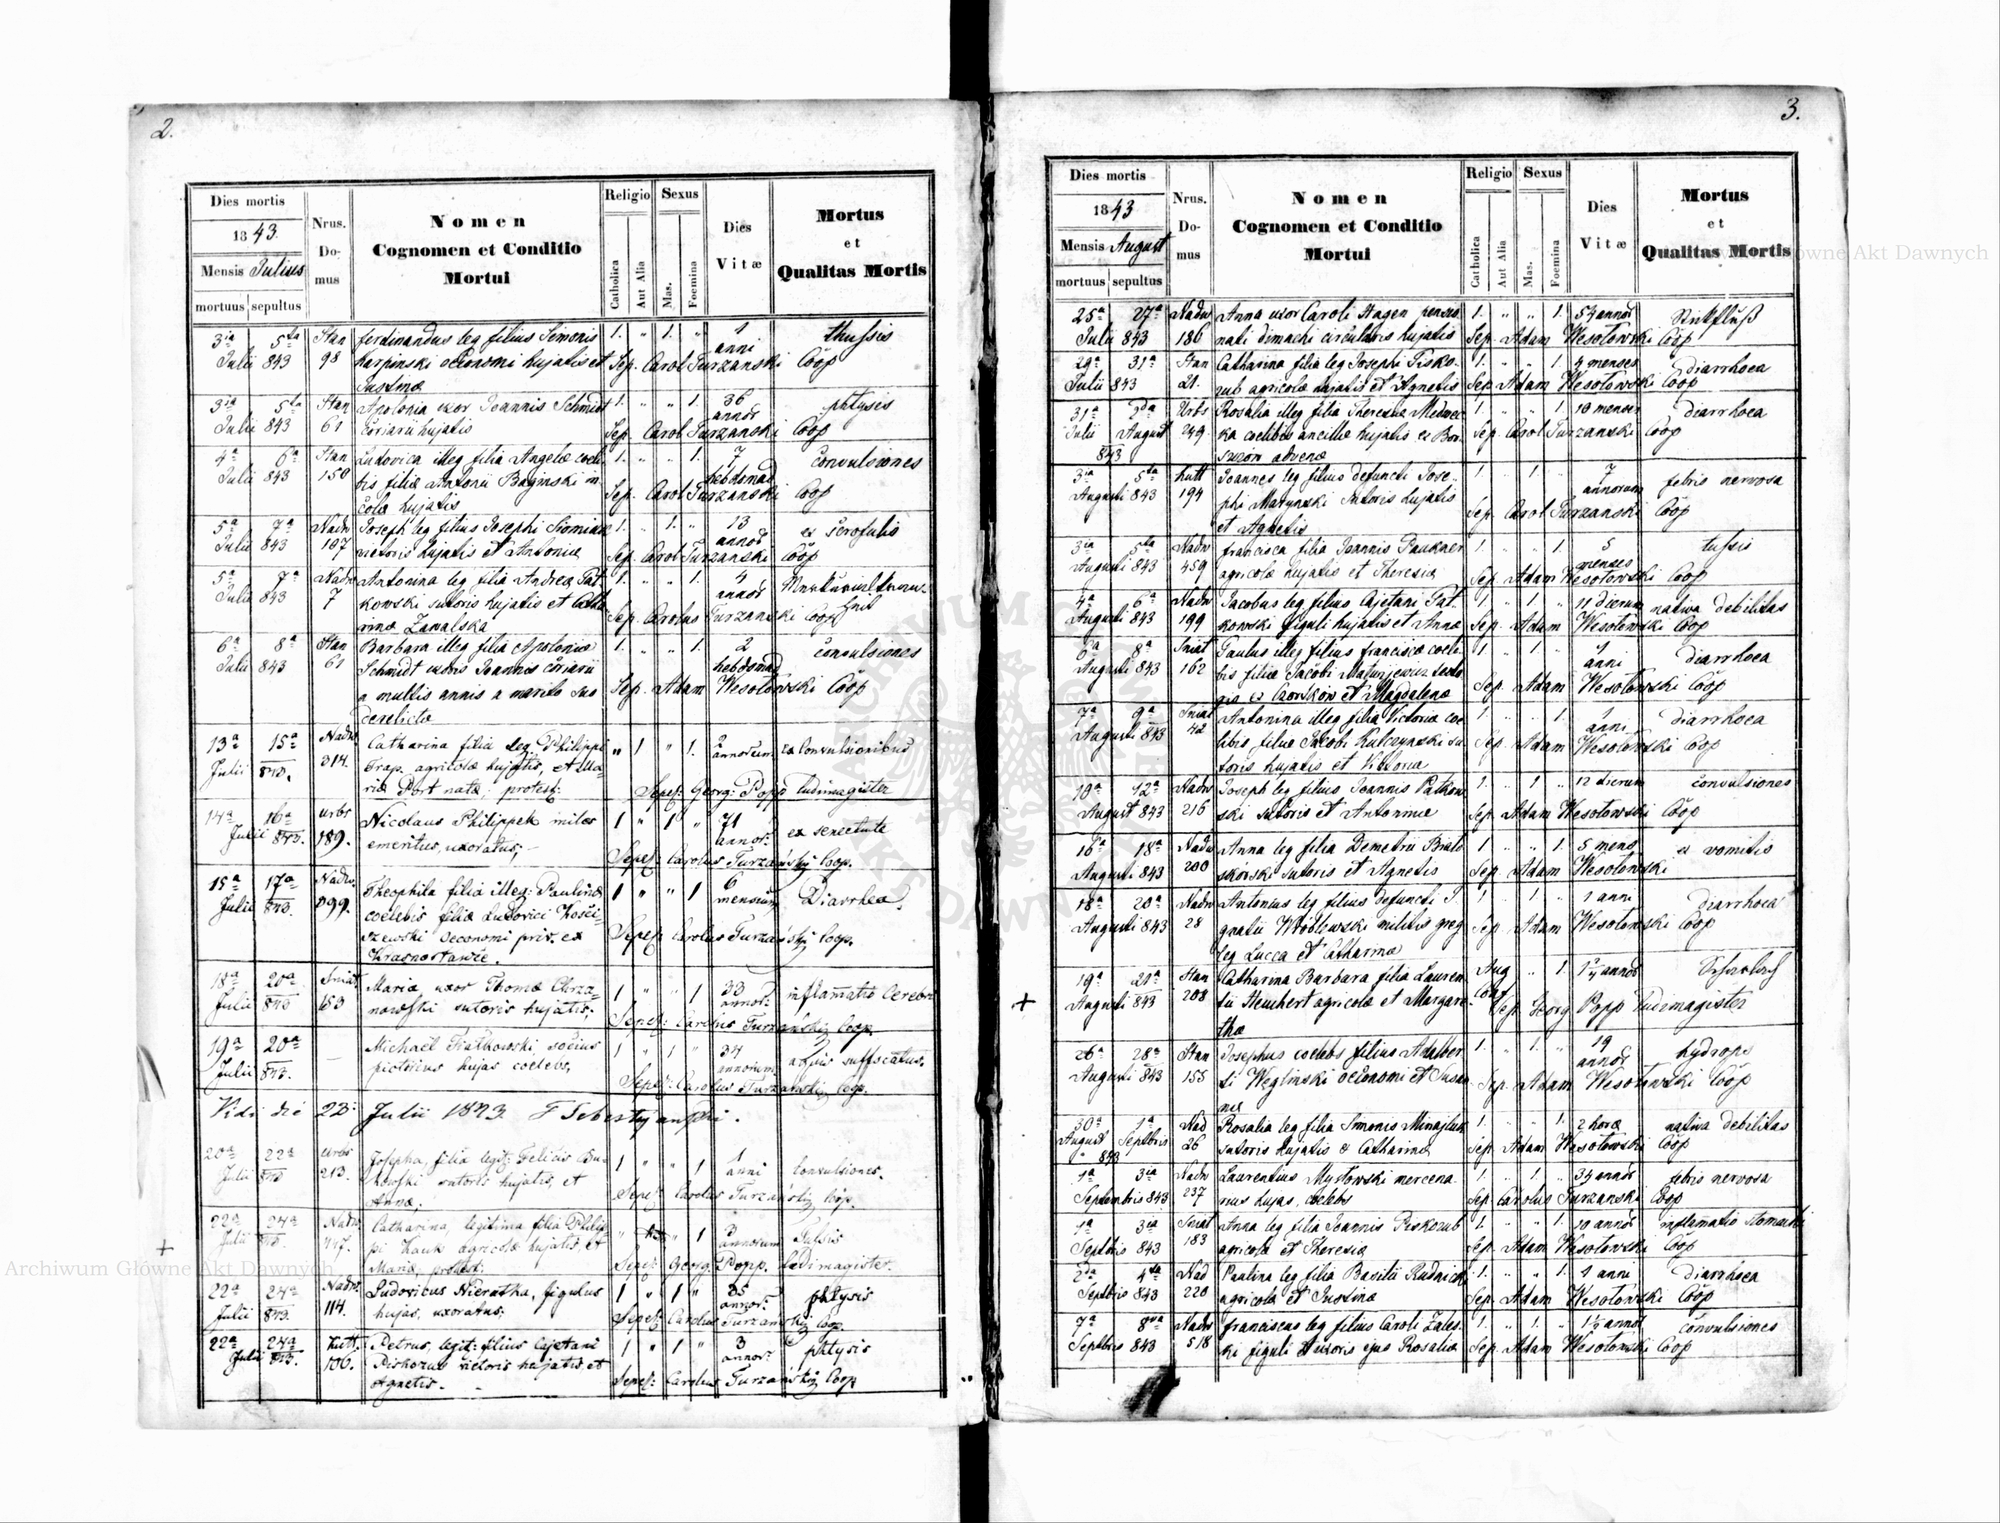 2.
Dies mortis
1843.
Mensis Julius
mortuus sepultus
Nrus. Domus
Nomen
Cognomen et Conditio
Mortui
Religio
Catholica
Aut Alia
Sexus
Mas.
Foemina
Dies
Vitæ
Mortus
et
Qualitas Mortis
3ia 5ta Stan ferdinandus leg filius Simonis 1. " 1. " 1 thussis
Julii 843 98 Karpinski oeconomi hujatis et anni
Justinæ Sep. Carol Turzanski Coop
3ia 5ta Stan Apolonia uxor Joannis Schmidt 1. " " 1. 36 phtysis
Julii 843 61 coriarii hujatis annor
Sep. Carol Turzanski Coop
4a 6a Stan Ludovica illeg filia Angelæ coele- 1. " " 1. 7 convulsiones
Julii 843 150 bis filiæ Antonii Baginski in hebdomad
colæ hujatis Sep. Carol Turzanski Coop
5a 7a Nadw Joseph leg filius Josephi 1. " 1. " 13 ex scrofulis
Julii 843 107 victoris hujatis et Antoniæ annor
Sep. Carol Turzanski Coop
5a 7a Nadw Antonina leg filia Andreæ Pat- 1. " " 1. 4
Julii 843 7 kowski sutoris hujatis et Catha annor
rinæ Zawalska Sep. Carolus Turzanski Coop
6a 8a Stan Barbara illeg filia Apoloniæ 1. " " 1. 2 convulsiones
Julii 843 61 Schmidt uxoris Joannis coriarii hebdomad
a multis annis a marito suo Sep. Adam Wesołowski Coop
derelicta
13a 15a Nadw. Catharina filia leg. Philippi " 1 " 1. 2 ex Convulsionibus
Julii 843. 314. Trap. agricolæ hujatis, et Ma- annorum
riæ Port natæ: protest: Sepel: Georg: Popp Ludimagister
14a 16a Urbs Nicolaus Philippek miles 1 " 1 " 71 ex senectute
Julii 843. 189. emeritus, uxoratus; annor:
Sepel: Carolus Turzański Coop.
15a 17a Nadw. Theophila filia illeg: Paulinæ 1 " " 1 6 Diarrhea.
Julii 843. 199. coelebis filiæ Ludovici Kości- mensium
szewski oeconomi priv. ex Sepel: Carolus Turzański Coop.
Krasnostawce.
18a 20a Sniat. Maria, uxor Thomæ Chrza- 1 " " 1 33 inflamatio Cerebri
Julii 843 153 nowski sutoris hujatis. annor:
Sepel: Carolus Turzański Coop.
19a 20a Michaël Fiałkowski socius 1 " 1 " 34 aquis suffocatus.
Julii 843. pictorius hujas coelebs, annorum
Sepel: Carolus Turzański Coop.
Vidi die 22: Julii 1843.
20a 22a Urbs Josepha, filia legit: Felicis Bu- 1 " " 1 1 Convulsiones.
Julii 843 213. kowski sutoris hujatis, et anni
Annæ. Sepel: Carolus Turzański Coop.
+
22a 24a Nadw. Catharina, legitima filia Philip- 1 3 Tussis
Julii 843 447. pi Hauk agricolæ hujatis, et annorum
Mariæ, protest: Sepel: Georg: Popp. Ludimagister.
22a 24a Nadw. Ludovicus Nieratka, figulus 1 " 1 " 35 phtysis
Julii 843. 114. hujas, uxoratus; annor:
Sepel: Carolus Turzański Coop.
22a 24a Kutt. Petrus, legit: filius Cajetani 1 " 1 " 3 phtysis
Julii 843. 106. Piskozub victoris hujatis, et annor:
Agnetis. Sepel: Carolus Turzański Coop.
3.
Dies mortis
1843
Mensis August
mortuus sepultus
Nrus. Domus
Nomen
Cognomen et Conditio
Mortui
Religio
Catholica
Aut Alia
Sexus
Mas.
Foemina
Dies
Vitæ
Mortus
et
Qualitas Mortis
25a 27a Nadw Anna uxor Caroli Hagen pensio 1. " " 1. 54 annor Stickfluß
Julii 843 186 nati circularis hujatis Sep. Adam Wesołowski Coop
29a 31a Stan Catharina filia leg Josephi Pisko- 1. " " 1. 4 menses diarrhoea
Julii 843 21. zub agricolæ hujatis et Agnetis Sep. Adam Wesołowski Coop
31a 2da Urbs Rosalia illeg filia Theresiæ 1. " " 1. 10 menses diarrhoea
Julii August 249 ka coelibis ancillæ hujatis ex Sep. Carol Turzanski Coop
843 advenæ
3ia 5ta Kutt Joannes leg filius defuncti Jose- 1. " 1. " 7 febris nervosa
Augusti 843 194 phi Matynski sutoris hujatis annorum
et Agnetis Sep. Carol Turzanski Coop
3ia 5ta Nadw francisca filia Joannis Paukner 1. " " 1. 5 tussis
Augusti 843 459 agricolæ hujatis et Theresiæ menses
Sep. Adam Wesołowski Coop
4a 6a Nadw Jacobus leg filius Cajetani Pat- 1. " 1. " 11 dierum nativa debilitas
Augusti 843 199 kowski figuli hujatis et Annæ Sep. Adam Wesołowski Coop
6a 8a Sniat Paulus illeg filius franciscæ coele- 1. " 1. " 1 diarrhoea
Augusti 843 162 bis filiæ Jacobi Matusjewicz anni
et Magdalenæ Sep. Adam Wesołowski Coop
7a 9a Sniat Antonina illeg filia Victoriæ coe 1. " " 1. 1 diarrhoea
Augusti 843 42 libis filiæ Jacobi Kulczynski su anni
toris hujatis et Victoria Sep. Adam Wesołowski Coop
10a 12a Nadw Joseph leg filius Joannis Patkow 1. " 1 " 12 dierum convulsiones
August 843 216 ski sutoris et Antoninæ Sep. Adam Wesołowski Coop
16a 18a Nadw Anna leg filia Demetrii Biało 1 " " 1. 5 mens ex vomitis
Augusti 843 200 skorski sutoris et Agnetis Sep. Adam Wesołowski
18a 20a Nadw Antonius leg filius defuncti I- 1. " 1. " 1 anni diarrhoea
Augusti 843 28 gnatii Wróblewski militis greg Sep. Adam Wesołowski Coop
leg Lucca et Catharinæ
+
19a 21a Stan Catharina Barbara filia Lauren Aug " 1. annor
Augusti 843 208 tii Heuchert agricolæ et Margare- Conf Sep Georg Popp Ludimagister
thæ
26a 28a Stan Josephus coelebs filius Adalber 1. " 1. " 19 hydrops
Augusti 843 155 ti Węglinski oeconomi et Susan annor
næ Sep. Adam Wesołowski Coop
30a 1a Nad Rosalia leg filia Simonis Minajluk 1. " " 1. 2 horæ nativa debilitas
August Septbris 26 sutoris hujatis & Catharinæ Sep. Adam Wesołowski Coop
" 843
1a 3ia Nadw Laurentius Mysłowski mercena- 1. " 1. " 34 annor febris nervosa
Septembris 843 237 rius hujas, coelebs Sep. Carolus Turzanski Coop
1a 3ia Sniat Anna leg filia Joannis Piskozub 1. " " 1. 10 annor inflamatio stomachi
Septbris 843 183 agricolæ et Theresiæ Sep. Adam Wesołowski Coop
2da 4ta Nad Paulina leg filia Basilii Rudnick 1. " " 1. 1 anni diarrhoea
Septbris 843 220 agricolæ et Justinæ Sep. Adam Wesołowski Coop
7a 8va Nadw franciscus leg filius Caroli Zales- 1. " 1. " 1½ annor convulsiones
Septbris 843 518 ki figuli et uxoris ejus Rosaliæ Sep. Adam Wesołowski Coop
Archiwum Główne Akt Dawnych
ARCHIWUM GŁÓWNE AKT DAWNYCH